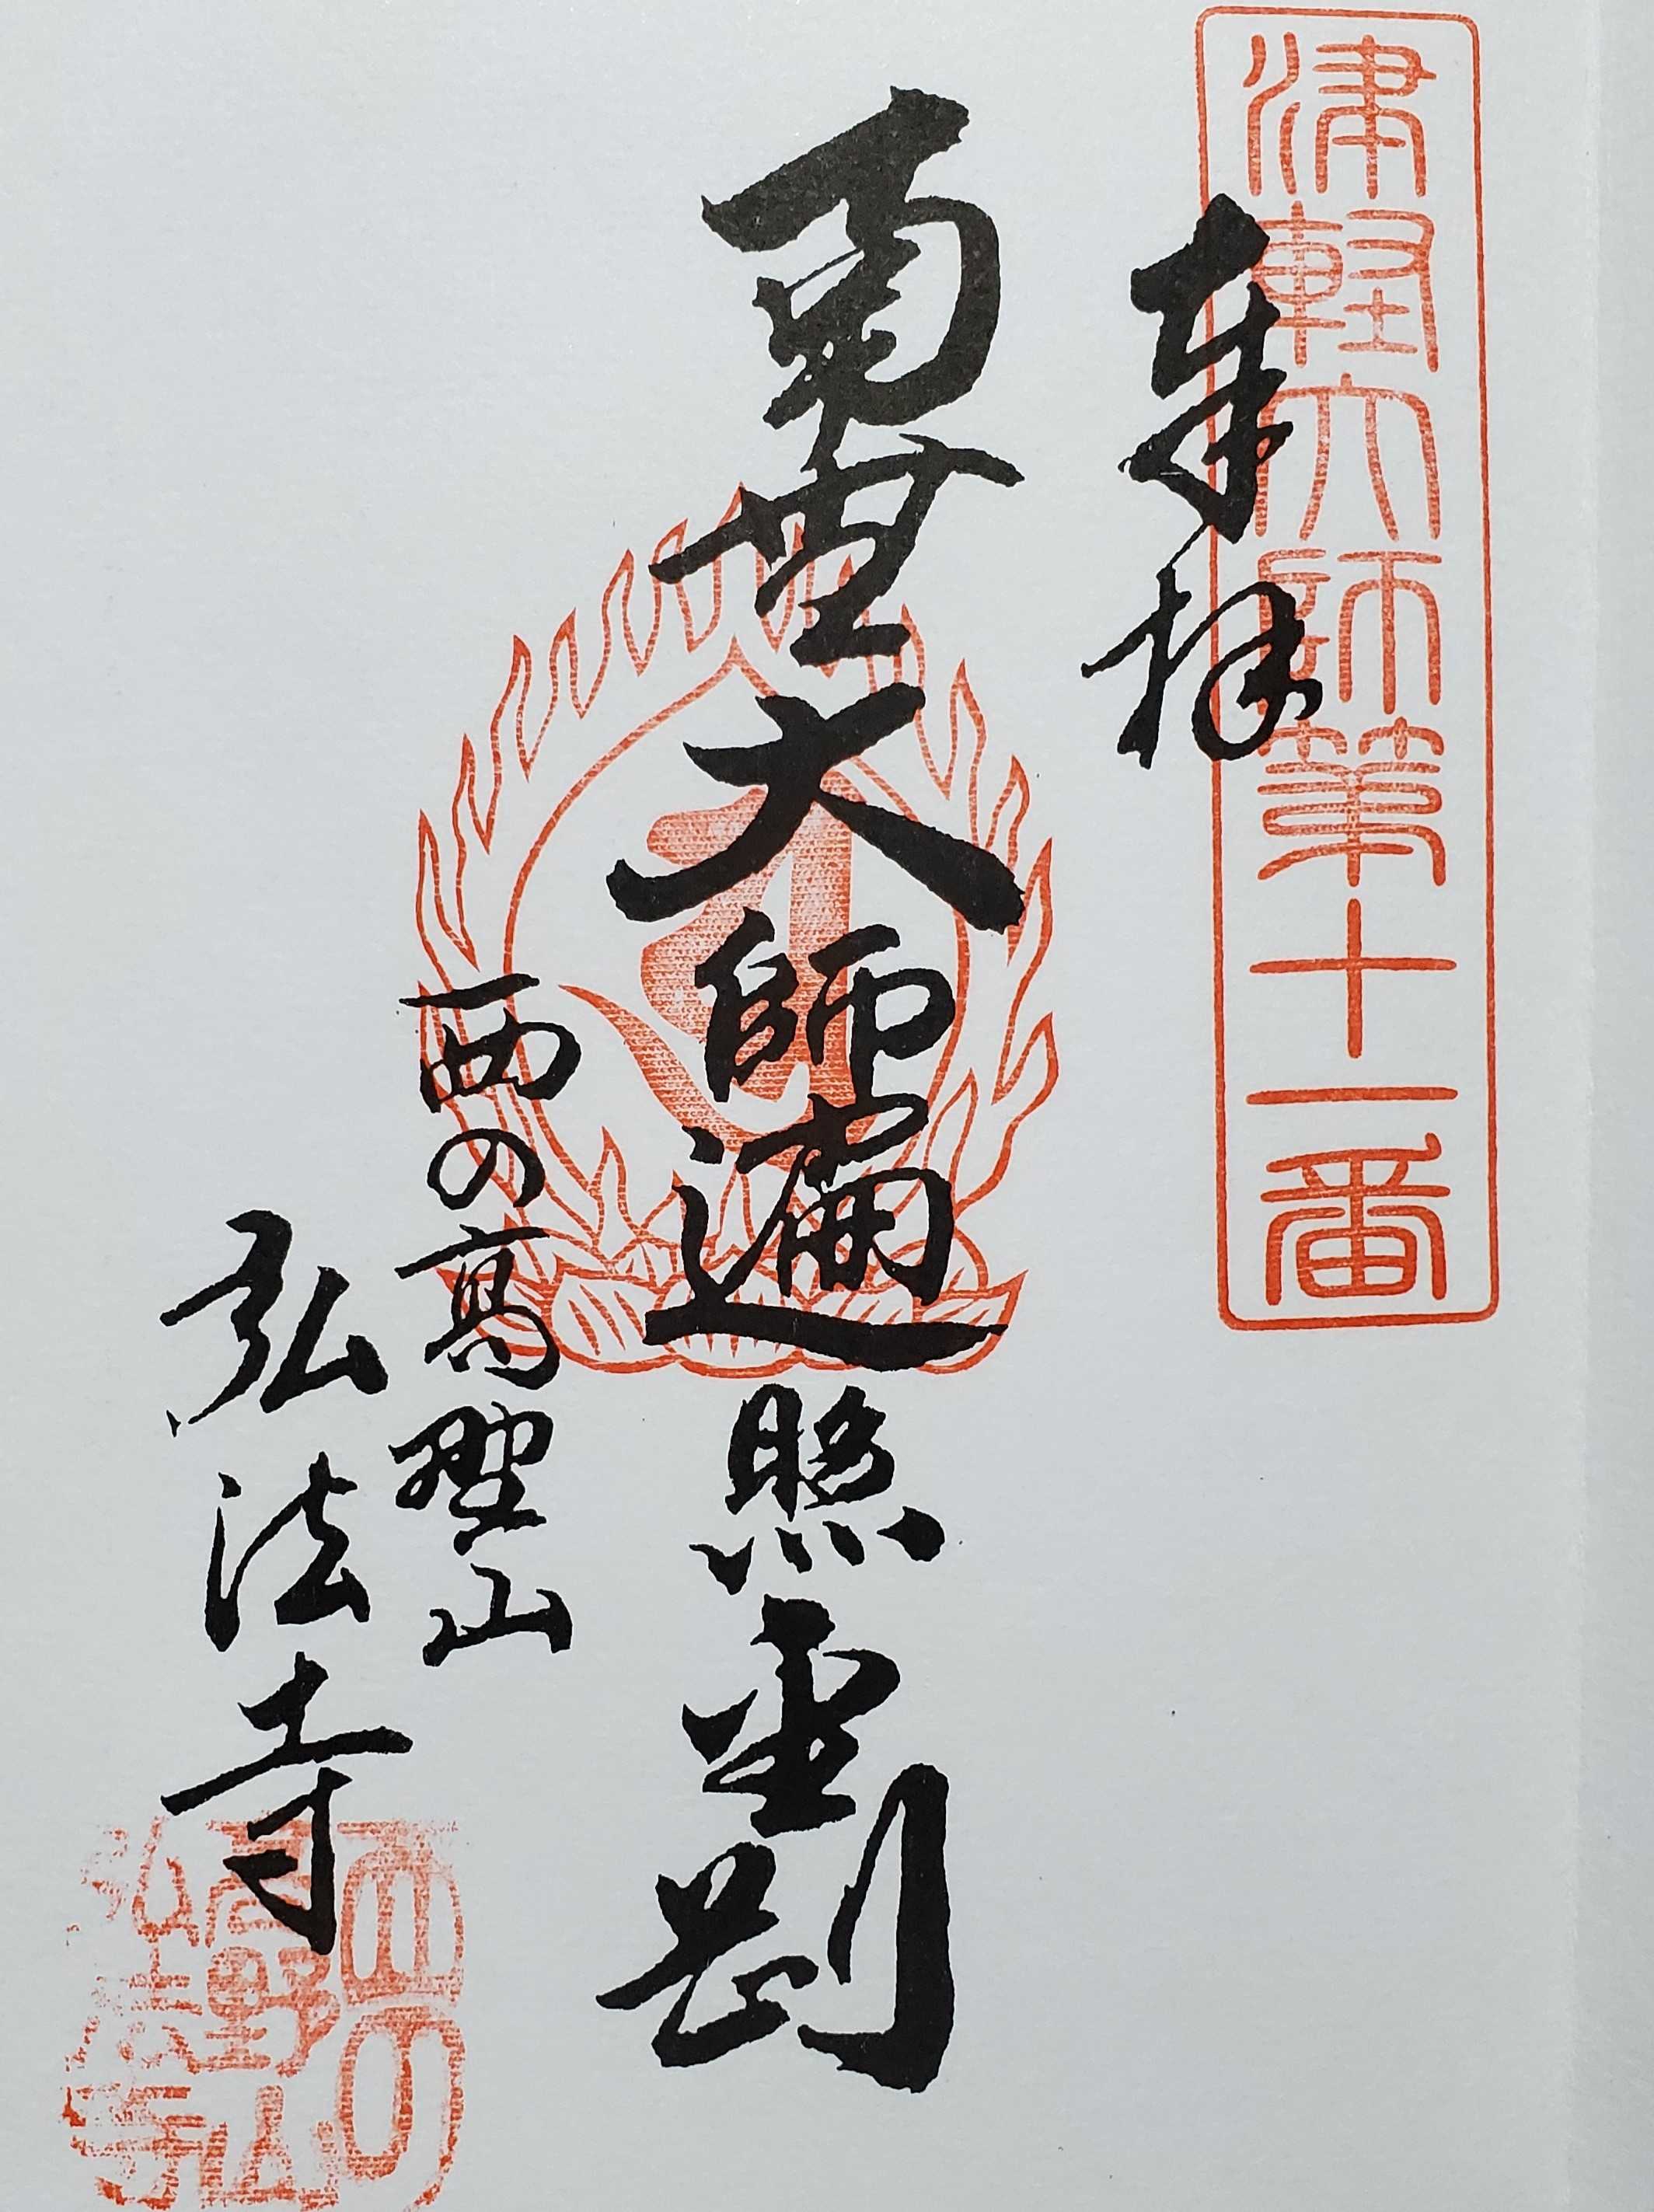 津軽大師第十一番
奉拝
南無大師遍照金剛
西の高野山
弘法寺
西の
高野山
弘法寺